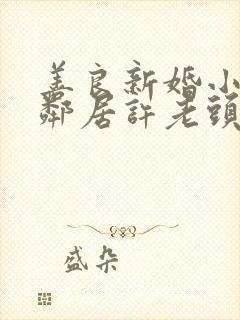 善良新婚小
鄰居許老頭
盛朵